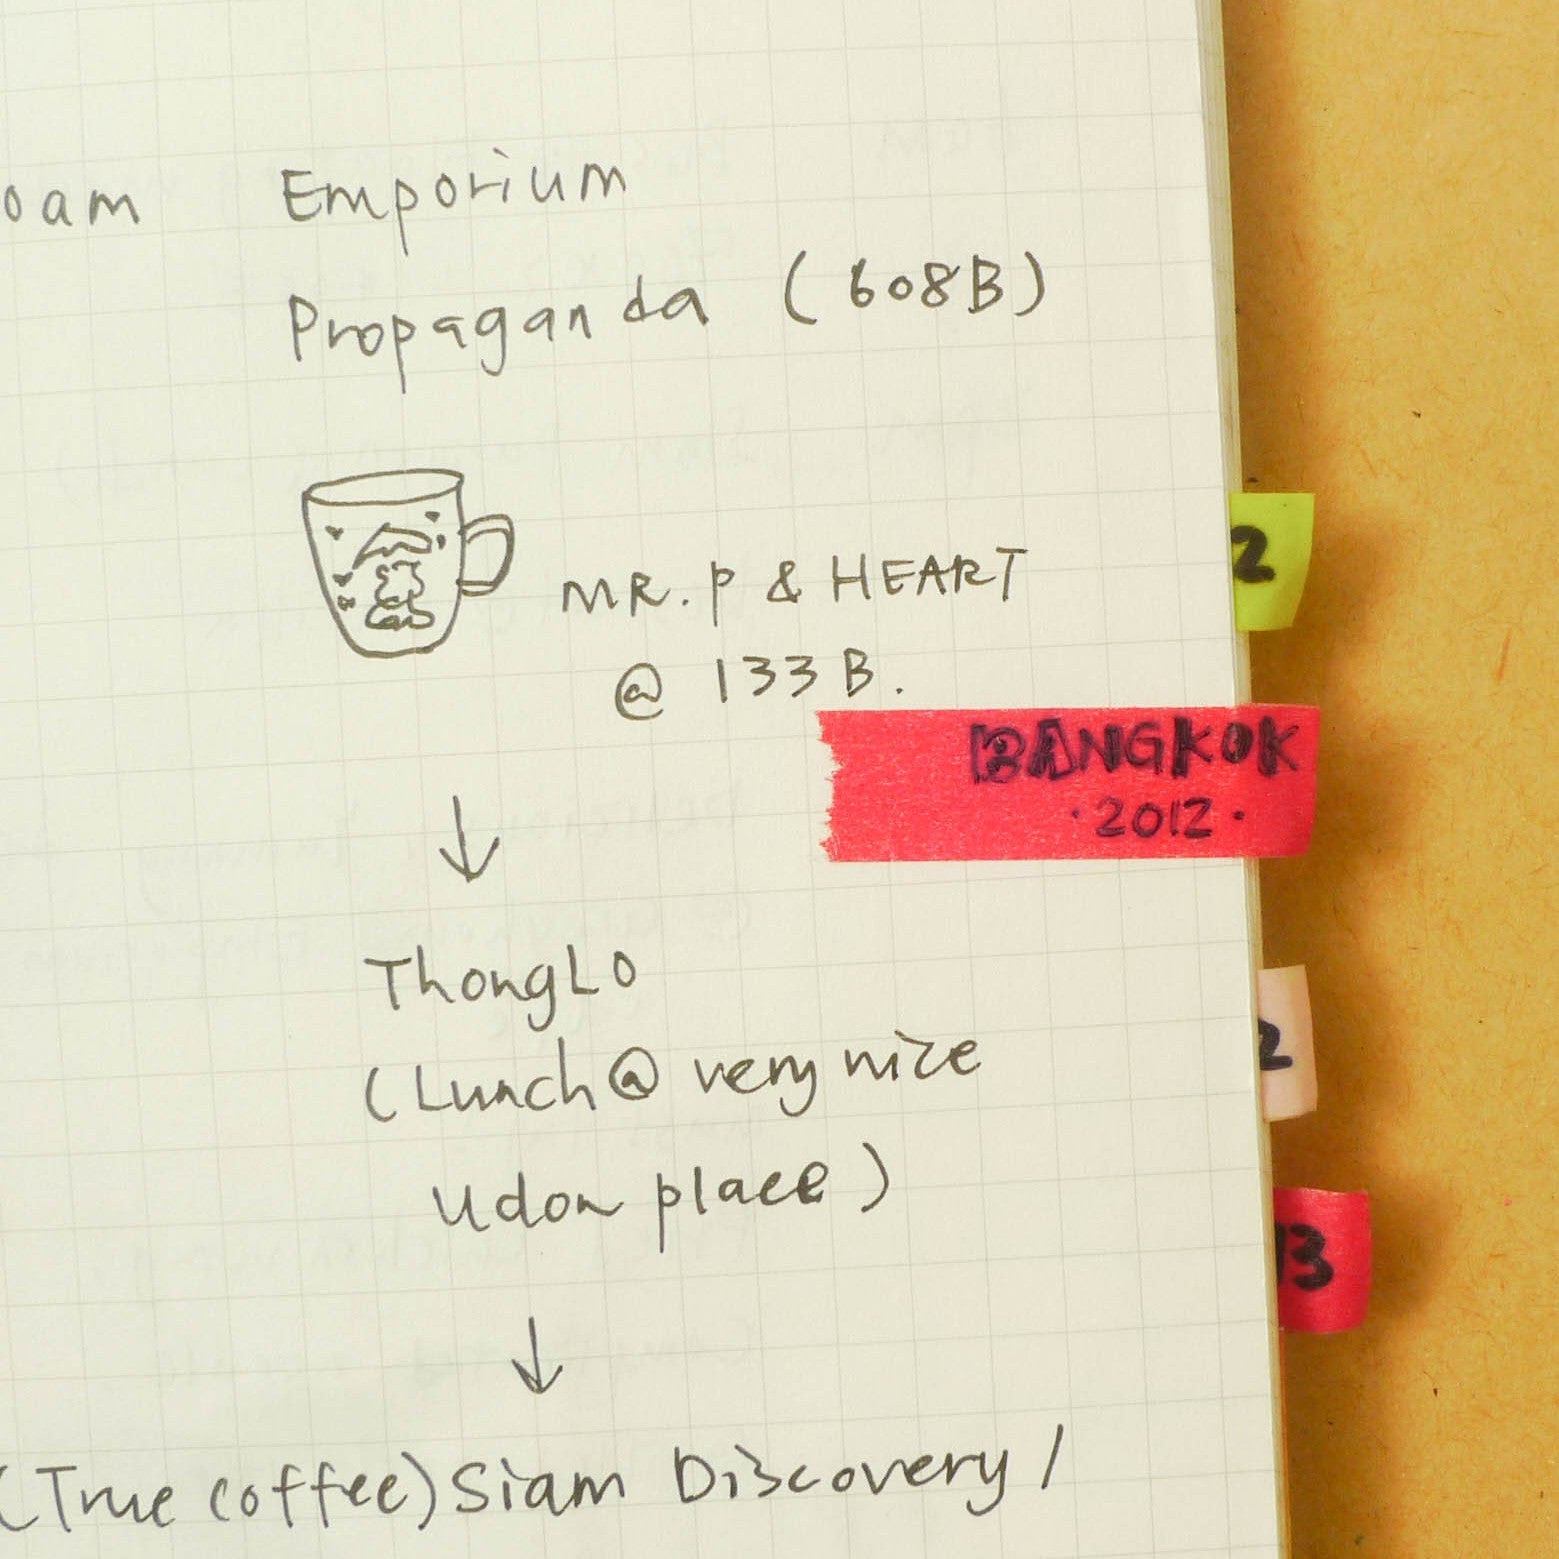 oam Emporium
Propaganda (608B)
MR. P & HEART
@ 133 B.
BANGKOK
·2012·
ThongLo
(Lunch@ very nice
Udon place)
(True coffee) Siam Discovery /
2
2
13